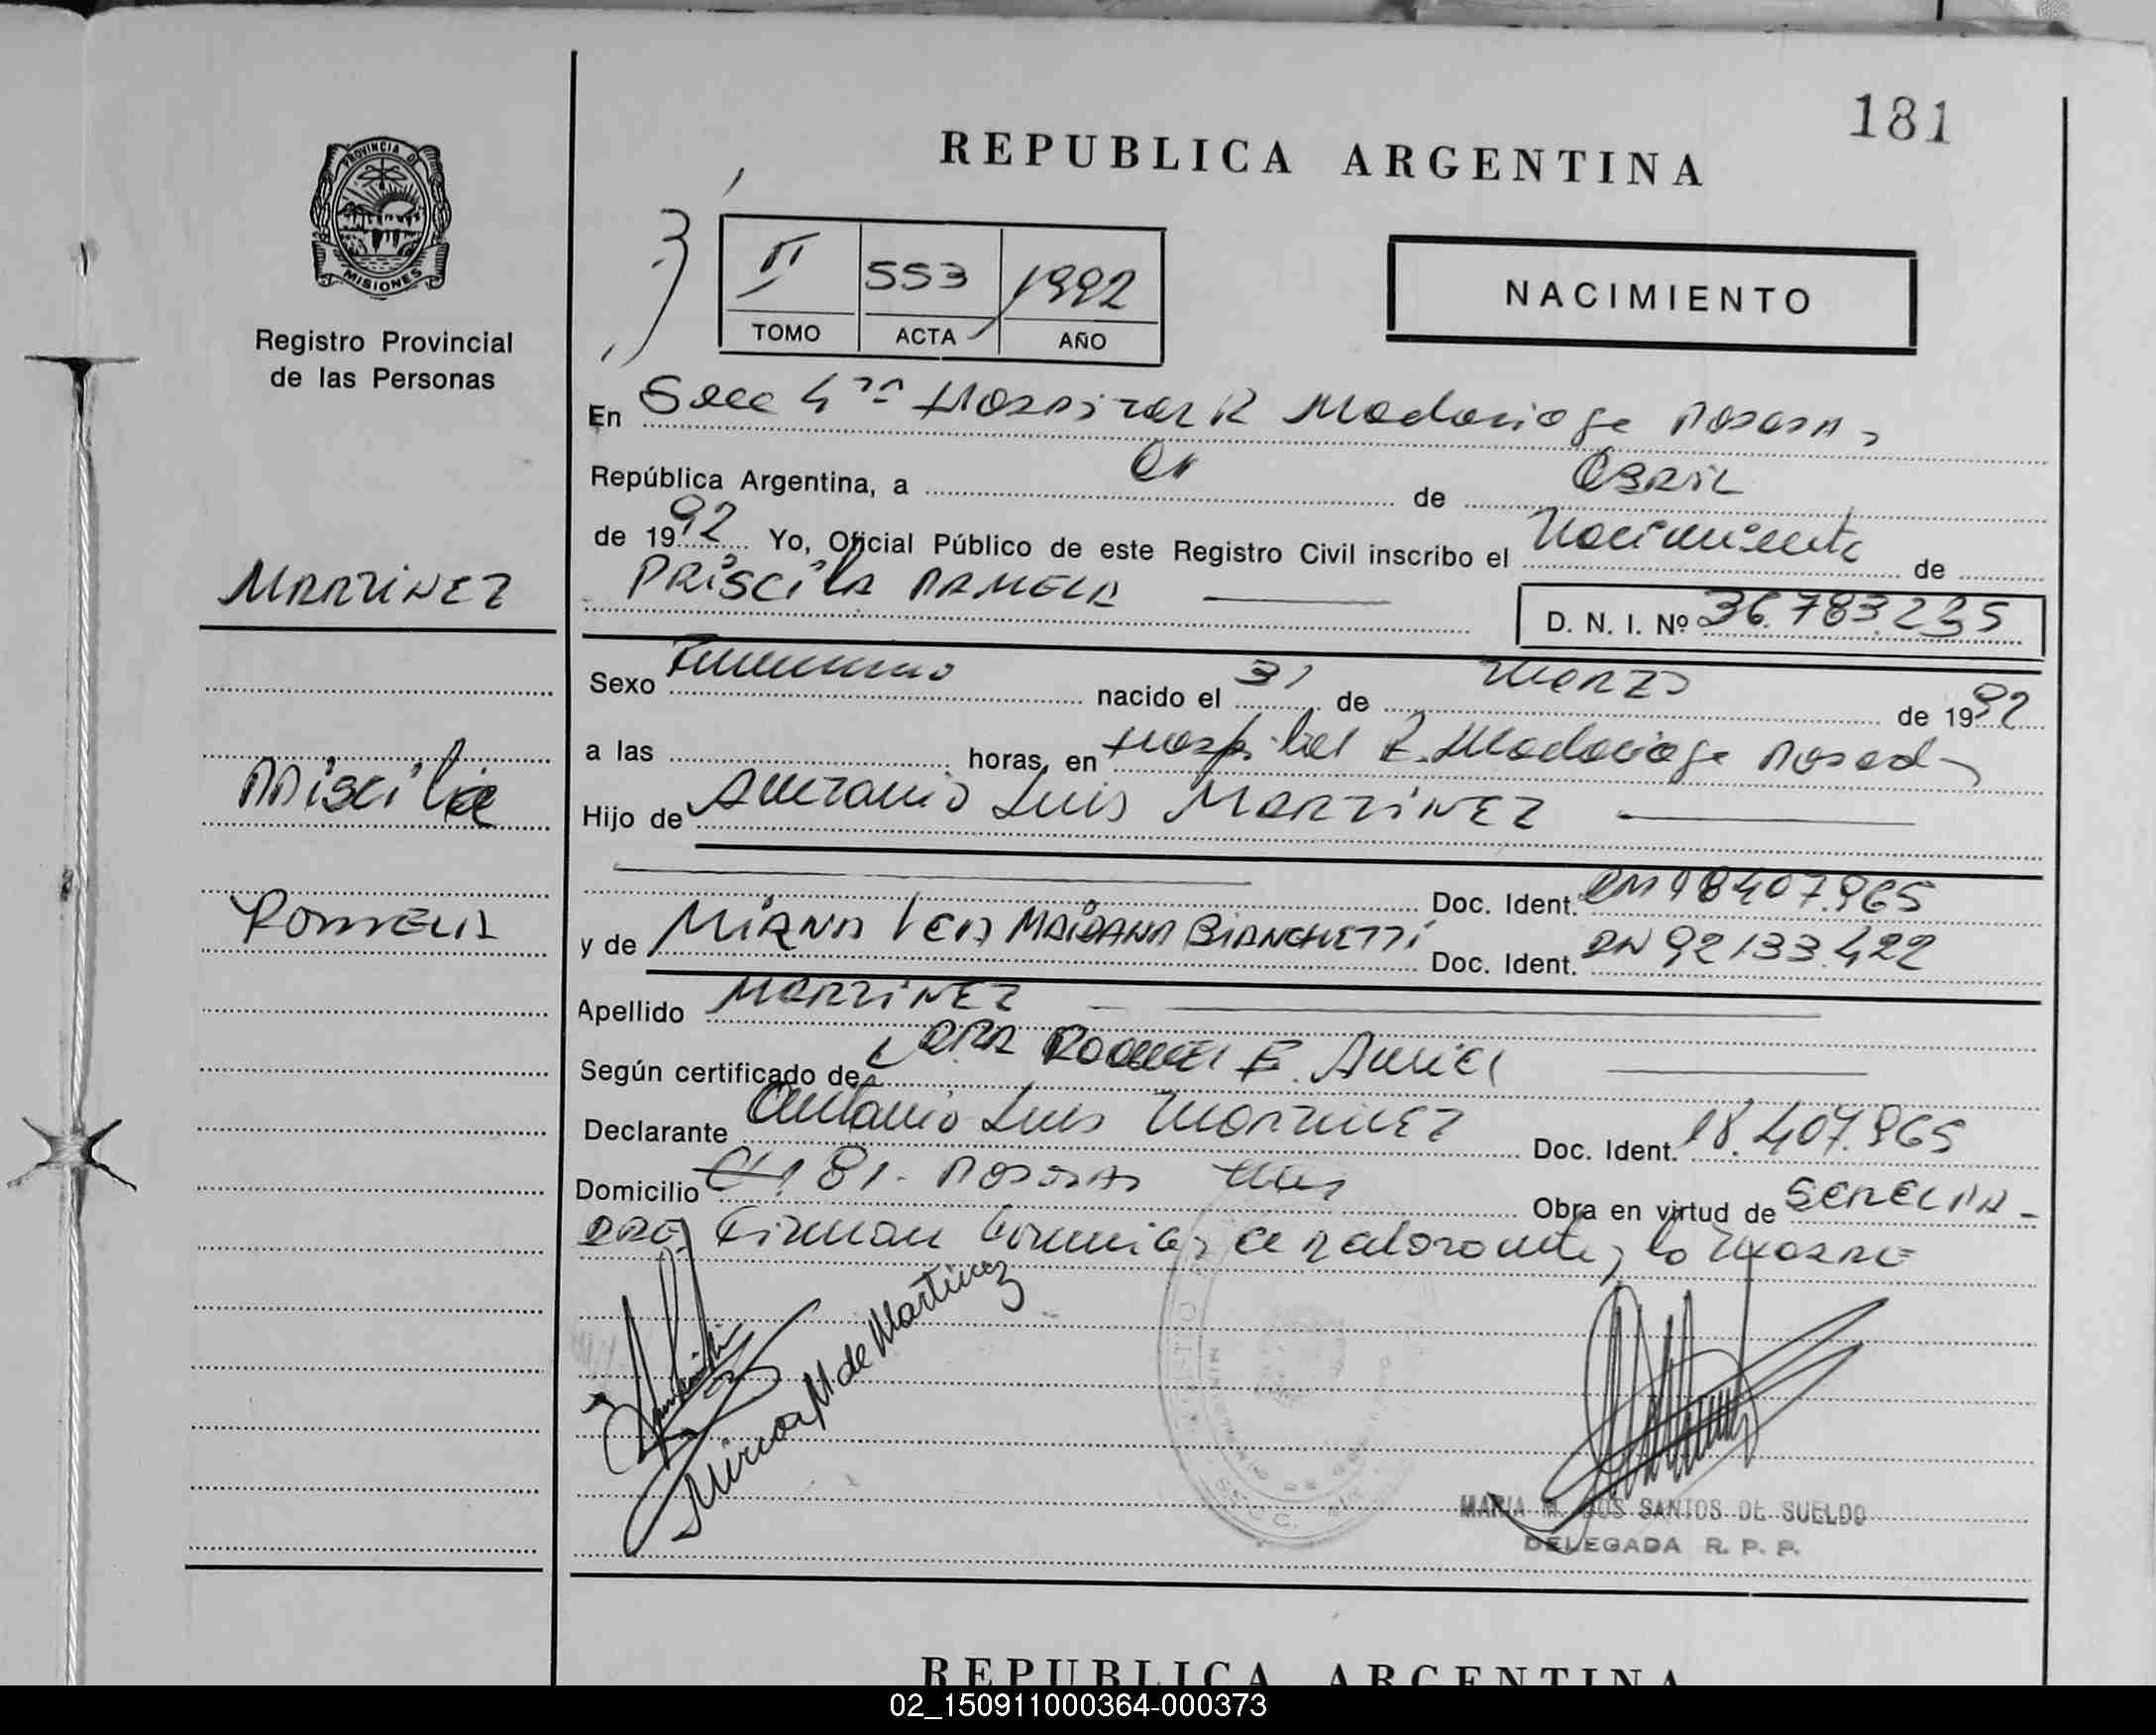 181
REPUBLICA ARGENTINA
PROVINCIA DE
MISIONES
Registro Provincial
de las Personas
II 553 1992
TOMO ACTA AÑO
NACIMIENTO
En Secc 4ta Hospital R Madariaga Posadas
República Argentina, a de Abril
de 1992 Yo, Oficial Público de este Registro Civil inscribo el Nacimiento de
MARTINEZ
PRISCILA PAMELA
D. N. I. Nº 36.783.235
Sexo Femenino nacido el 31 de Marzo de 1992
a las horas, en Hospital R. Madariaga Posadas
Priscila
Hijo de Antonio Luis MARTINEZ
Doc. Ident. 18407.965
Pamela
y de MIRNA MAIDANA BIANCHETTI Doc. Ident. 92133.422
Apellido MARTINEZ
Según certificado de E.
Declarante Antonio Luis MARTINEZ Doc. Ident. 18.407.965
Domicilio 181 - Posadas Mnes Obra en virtud de
Firman conmigo el declarante, la madre
Mirna M de Martinez
MARIA M. DOS SANTOS DE SUELDO
DELEGADA R. P. P.
REPUBLICA ARGENTINA
02_150911000364-000373